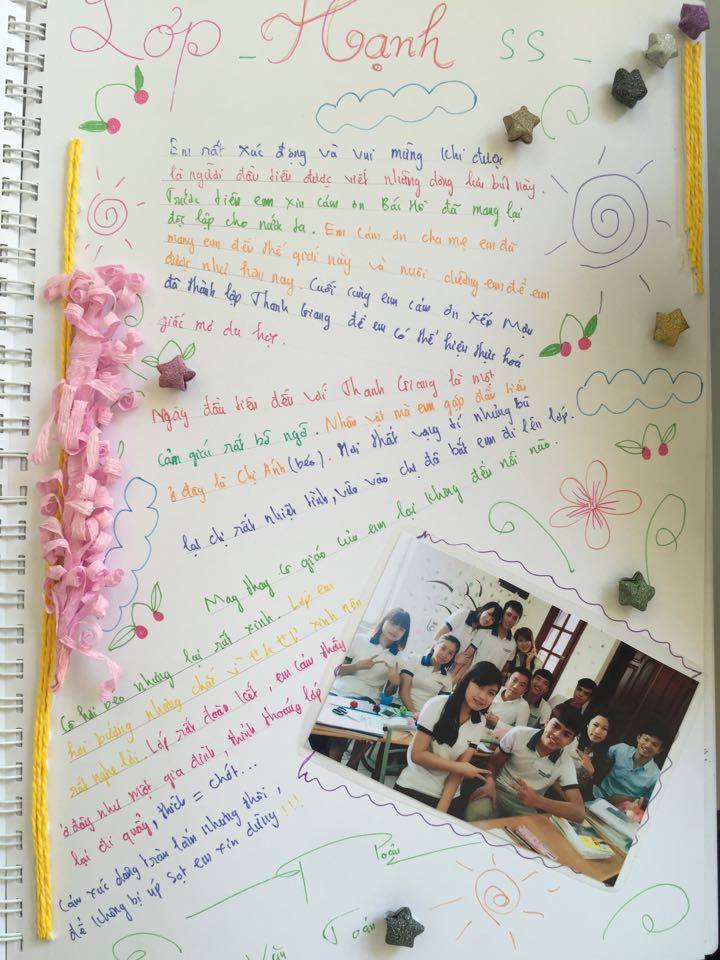 Lớp _ Hạnh SS _
Em rất xúc động và vui mừng khi được
là người đầu tiên được viết những dòng lưu bút này.
Trước tiên em xin cảm ơn Bác Hồ đã mang lại
độc lập cho nước ta. Em cảm ơn cha mẹ em đã
mang em đến thế giới này và nuôi dưỡng em để em
được như hôm nay. Cuối cùng em cảm ơn xếp Mậu
đã thành lập Thanh Giang để em có thể hiện thực hoá
giấc mơ du học.
Ngày đầu tiên đến với Thanh Giang là một
cảm giác rất bỡ ngỡ. Nhân vật mà em gặp đầu tiên
ở đây là Chị Ánh (béo). Hơi thất vọng tí nhưng bù
lại chị rất nhiệt tình, vừa vào chị đã bắt em đi lên lớp.
May thay cô giáo của em lại không đến nỗi nào.
Cô hơi béo nhưng lại rất xinh. Lớp em
hơi bướng nhưng chốt vì せんせい xinh nên
rất nghe lời. Lớp rất đoàn kết, em cảm thấy
ở đây như một gia đình, thỉnh thoảng lớp
lại đi quẩy, thích = chốt...
Cảm xúc dâng trào lắm nhưng thôi,
để không bị úp sọt em xin dừng!!!
Toán
Toán